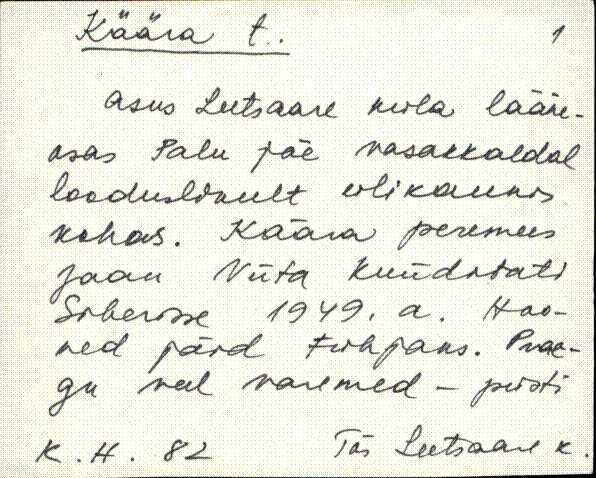 Käära t.. 1
asus Leetsaare küla lääne-
osas Palu jõe vasakkaldal
looduslikult ülikaunis
kohas. Käära peremees
Jaan Viita küüditati
Siberisse 1949. a. Hoo-
ned jäid tühjaks. Prae-
gu veel varemed - püsti
K. H. 82 Tõs Leetsaare k.